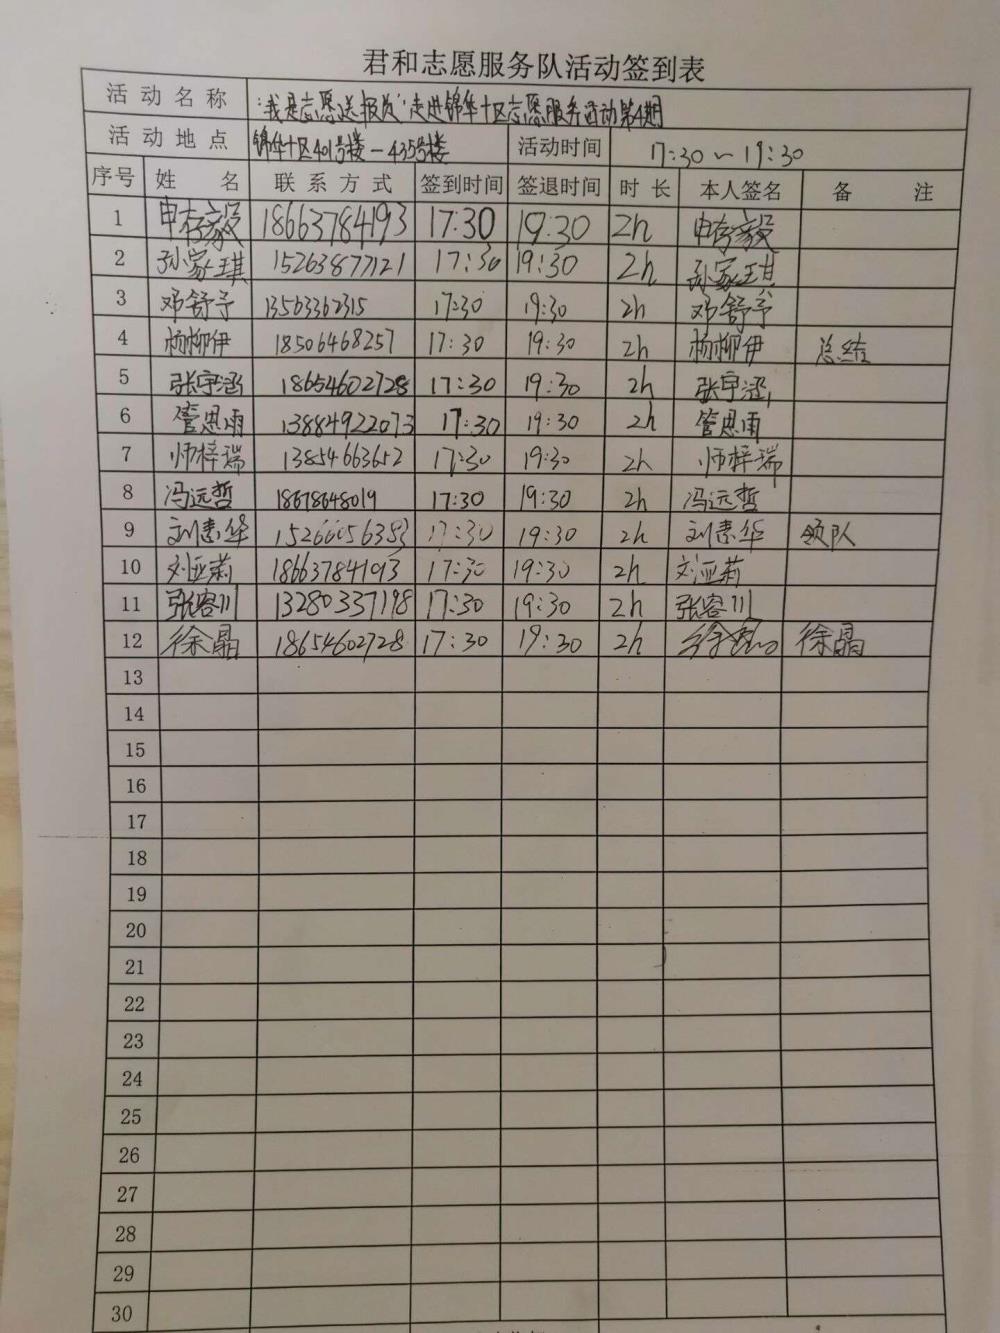 君和志愿服务队活动签到表
活动名称 "我是志愿送报员"走进锦华十区志愿服务活动第4期
活动地点 锦华十区401号楼—435号楼 活动时间 17:30~19:30
序号 姓名 联系方式 签到时间 签退时间 时长 本人签名 备注
1 申存毅 18663784193 17:30 19:30 2h 申存毅
2 孙家琪 15263877121 17:30 19:30 2h 孙家琪
3 邓舒予 13563362315 17:30 19:30 2h 邓舒予
4 杨柳伊 18506468257 17:30 19:30 2h 杨柳伊 总结
5 张宇涵 18654602728 17:30 19:30 2h 张宇涵
6 管思雨 13884922073 17:30 19:30 2h 管思雨
7 师梓瑞 13854663652 17:30 19:30 2h 师梓瑞
8 冯远哲 18678648019 17:30 19:30 2h 冯远哲
9 刘素华 15266056383 17:30 19:30 2h 刘素华 领队
10 刘亚莉 18663784193 17:30 19:30 2h 刘亚莉
11 张容川 13280337198 17:30 19:30 2h 张容川
12 徐晶 18654602728 17:30 19:30 2h 徐晶 徐晶
13
14
15
16
17
18
19
20
21
22
23
24
25
26
27
28
29
30